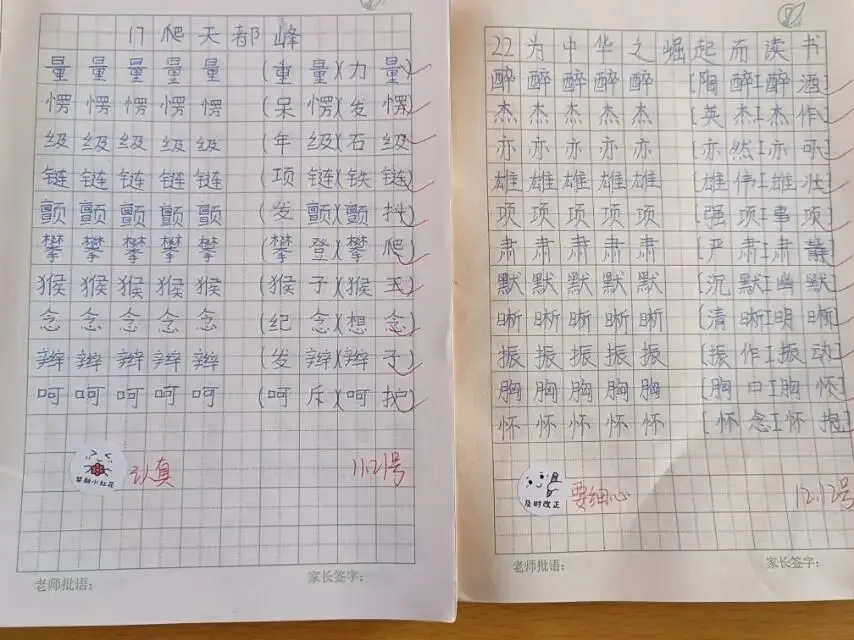 17 爬天都峰
量 量 量 量 量 (重量)(力量)
愣 愣 愣 愣 愣 (呆愣)(发愣)
级 级 级 级 级 (年级)(石级)
链 链 链 链 链 (项链)(铁链)
颤 颤 颤 颤 颤 (发颤)(颤抖)
攀 攀 攀 攀 攀 (攀登)(攀爬)
猴 猴 猴 猴 猴 (猴子)(猴王)
念 念 念 念 念 (纪念)(想念)
辫 辫 辫 辫 辫 (发辫)(辫子)
呵 呵 呵 呵 呵 (呵斥)(呵护)
奖励小红花 认真 11.21号
老师批语: 家长签字:
22 为中华之崛起而读书
醉 醉 醉 醉 醉 [陶醉][醉酒]
杰 杰 杰 杰 杰 [英杰][杰作]
亦 亦 亦 亦 亦 [亦然][亦可]
雄 雄 雄 雄 雄 [雄伟][雄壮]
项 项 项 项 项 [强项][事项]
肃 肃 肃 肃 肃 [严肃][肃静]
默 默 默 默 默 [沉默][幽默]
晰 晰 晰 晰 晰 [清晰][明晰]
振 振 振 振 振 [振作][振动]
胸 胸 胸 胸 胸 [胸口][胸怀]
怀 怀 怀 怀 怀 [怀念][怀抱]
及时改正 要细心 12.12号
老师批语: 家长签字: